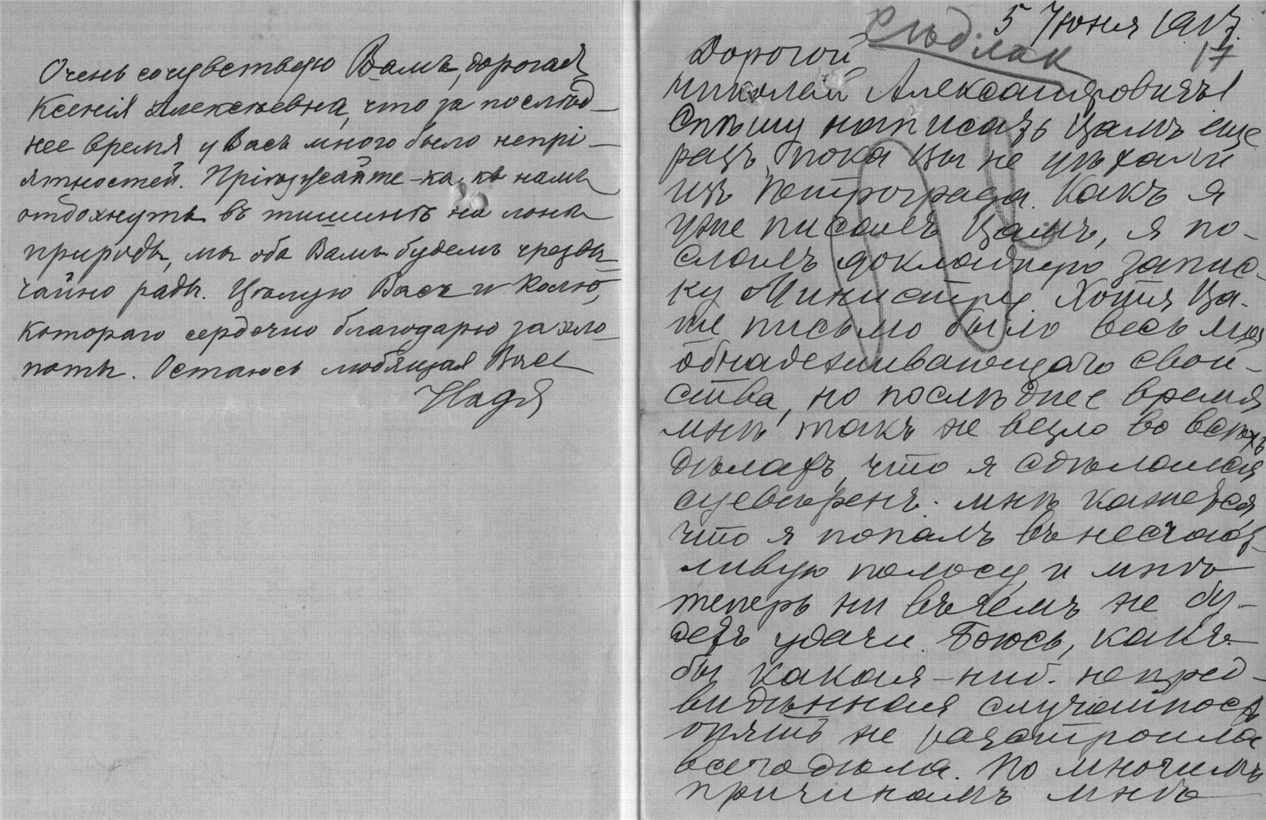 Очень сочувствую Вамъ, дорогая
Ксенія Алексѣевна, что за послѣд-
нее время у Васъ много было непрі-
ятностей. Пріѣзжайте-ка къ намъ
отдохнуть въ тишинѣ на лонѣ
природы, мы оба Вамъ будемъ чрезвы-
чайно рады. Цѣлую Васъ и Колю,
котораго сердечно благодарю за хло-
поты. Остаюсь любящая Васъ
Надя
5 Іюня 1917.
17
Дорогой
Николай Александровичъ!
Спѣшу написать Вамъ еще
разъ, пока Вы не уѣхали
изъ Петрограда. Какъ я
уже писалъ Вамъ, я по-
слалъ докладную запис-
ку Министру. Хотя Ва-
ше письмо было весьма
обнадеживающаго свой-
ства, но послѣднее время
мнѣ такъ не везло во всѣхъ
дѣлахъ, что я сдѣлался
суевѣренъ. Мнѣ кажется,
что я попалъ въ несчаст-
ливую полосу и мнѣ
теперь ни въ чемъ не бу-
детъ удачи. Боюсь, какъ
бы какая-ниб. непред-
видѣнная случайность
опять не разстроила
всего дѣла. По многимъ
причинамъ мнѣ